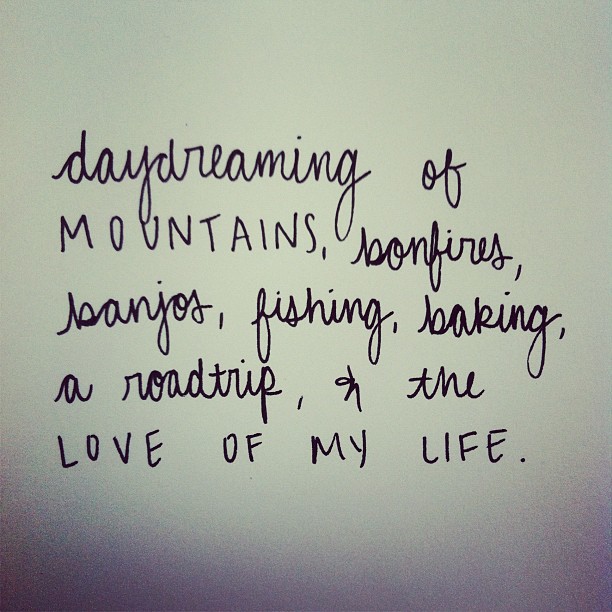 daydreaming of
MOUNTAINS, bonfires,
banjos, fishing, baking,
a roadtrip, & the
LOVE OF MY LIFE.